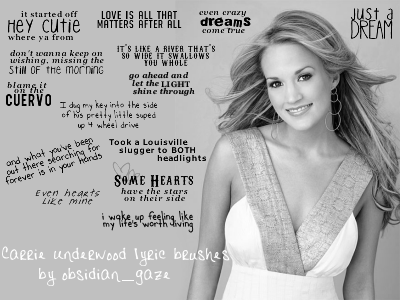 it started off
HEY CUTIE
where ya from
LOVE IS ALL THAT
MATTERS AFTER ALL
even crazy
dreams
come true
Just a
DREAM
don't wanna keep on
wishing, missing the
still of the morning
IT'S LIKE A RIVER THAT'S
SO WIDE IT SWALLOWS
YOU WHOLE
go ahead and
let the LIGHT
shine through
blame it
on the
CUERVO
I dug my key into the side
of his pretty little suped
up 4 wheel drive
Took a Louisville
slugger to BOTH
headlights
and what you've been
out there searching for
forever is in your hands
SOME HEARTS
have the stars
on their side
Even hearts
like mine
i wake up feeling like
my life's worth living
Carrie underwood lyric brushes
by obsidian_gaze